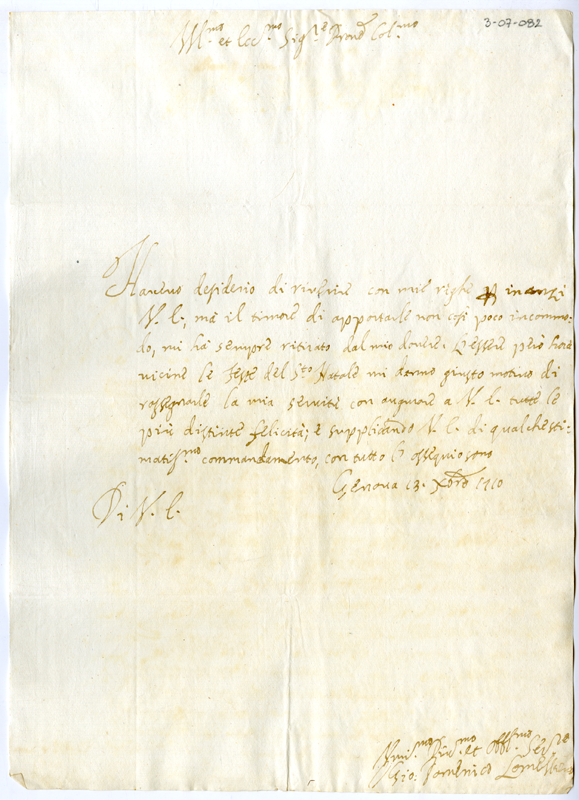 3-07-082
Ill.mo et Ecc.mo Sig.re Pron Col.mo
Haveuo desiderio di riverire con mie righe inanzi
V. E., mà il timore di apportarle non così poco incommo-
do, mi hà sempre ritirato dal mio dovere. L'essere però hora
vicine le feste del S.to Natale mi danno giusto motivo di
rassegnarle la mia servitù con augurare a V. E. tutte le
più distinte felicità; e supplicando V. E. di qualche sti-
matiss.mo commandamento, con tutto l'ossequio sono
Genova 13. Xbre 1710
Di V. E.
et obbl.mo Ser.re
Gio. Domenico